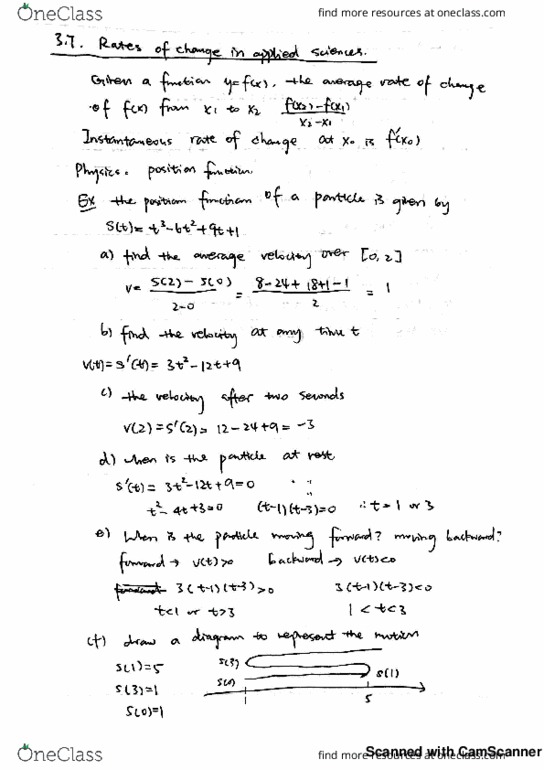 OneClass
find more resources at oneclass.com
3.7. Rates of change in applied sciences.
Given a function y=f(x). the average rate of change
of f(x) from x₁ to x₂ f(x₂)-f(x₁) / x₂-x₁
Instantaneous rate of change at x₀ is f'(x₀)
Physics. position function.
Ex the position function of a particle is given by
S(t)= t³-6t²+9t+1
a) find the average velocity over [0,2]
V= S(2)-S(0) / 2-0 = 8-24+18+1-1 / 2 = 1
b) find the velocity at any time t
V(t)=S'(t)= 3t²-12t+9
c) the velocity after two seconds
V(2)=S'(2)= 12-24+9=-3
d) when is the particle at rest
S'(t)= 3t²-12t+9=0
t²-4t+3=0 (t-1)(t-3)=0 ∴t=1 or 3
e) When is the particle moving forward? moving backward?
forward → V(t)>0 backward → V(t)<0
forward 3(t-1)(t-3)>0 3(t-1)(t-3)<0
t<1 or t>3 1<t<3
(f) draw a diagram to represent the motion
S(1)=5 S(3) S(1)
S(3)=1 S(0)
S(0)=1 1 5
OneClass
find more resources at oneclass.com
Scanned with CamScanner